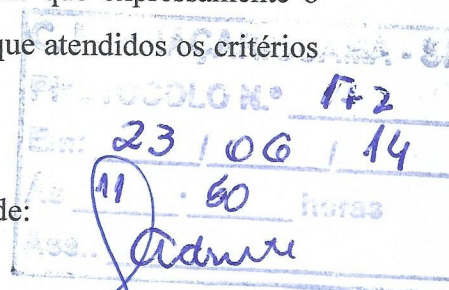 expressamente o
que atendidos os critérios
PROTOCOLO N.º 172
Em: 23 / 06 / 14
de:
Às 11 : 50 horas
Ass.: